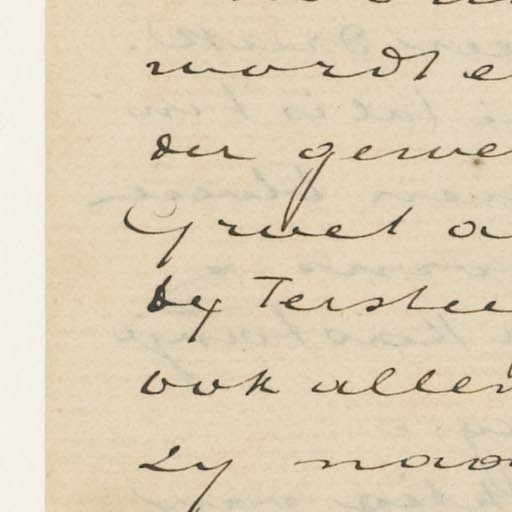 wordt e
der gewe
Groet a
by Terstee
ook allen
zy naa